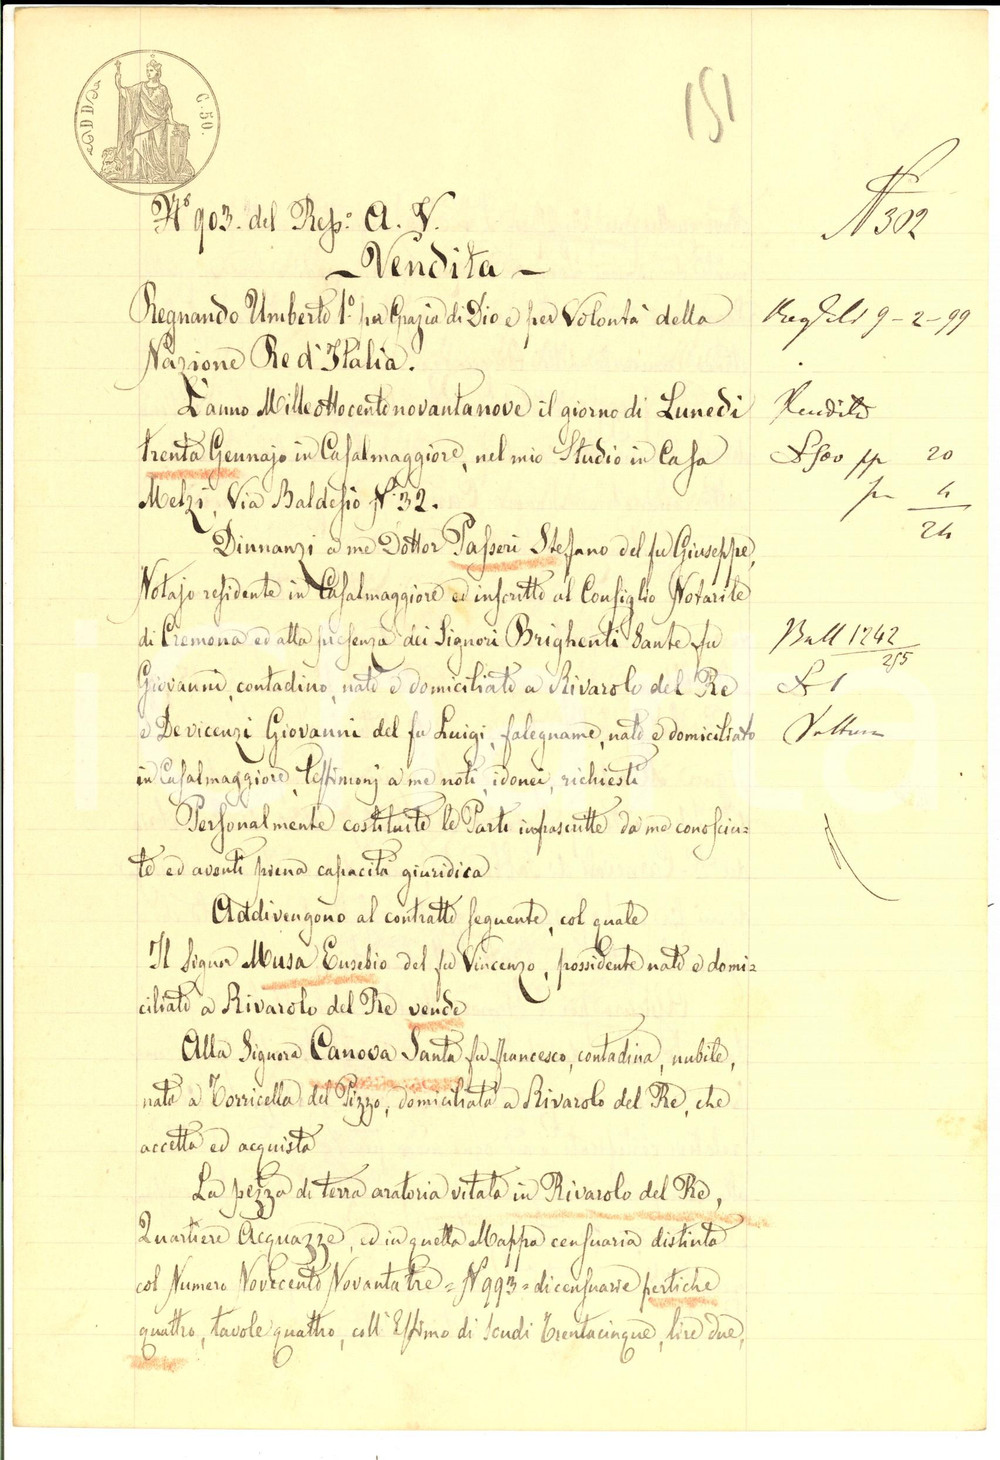 C. 50.
151
N° 903. del Rep.° A. V.
N 302
Vendita
Regnando Umberto 1° per Grazia di Dio e per Volontà della
9-2-99
Nazione Re d'Italia.
L'anno Milleottocentonovantanove il giorno di Lunedì
Vendita
trenta Gennajo in Casalmaggiore, nel mio Studio in Casa
20
Melzi, Via Baldesio N° 32.
4
24
Dinnanzi a me Dottor Passeri Stefano del fu Giuseppe,
Notajo residente in Casalmaggiore ed inscritto al Consiglio Notarile
di Cremona ed alla presenza dei Signori Brighenti Sante fu
Boll 1242
215
Giovanni, contadino, nato e domiciliato a Rivarolo del Re
N 1
e Devicenzi Giovanni del fu Luigi, falegname, nato e domiciliato
Voltura
in Casalmaggiore, testimonj a me noti, idonei, richiesti
Personalmente costituite le Parti infrascritte da me conosciu=
te ed aventi piena capacità giuridica
Addivengono al contratto seguente, col quale
Il Signor Musa Eusebio del fu Vincenzo, possidente nato e domi=
ciliato a Rivarolo del Re vende
Alla Signora Canova Santa fu Francesco, contadina, nubile,
nata a Torricella del Pizzo, domiciliata a Rivarolo del Re, che
accetta ed acquista
La pezza di terra aratoria vitata in Rivarolo del Re,
Quartiere Acquazze, ed in quella Mappa censuaria distinta
col Numero Novecento Novantatre = N 993 = di censuarie pertiche
quattro, tavole quattro, coll'Estimo di Scudi Trentacinque, lire due,